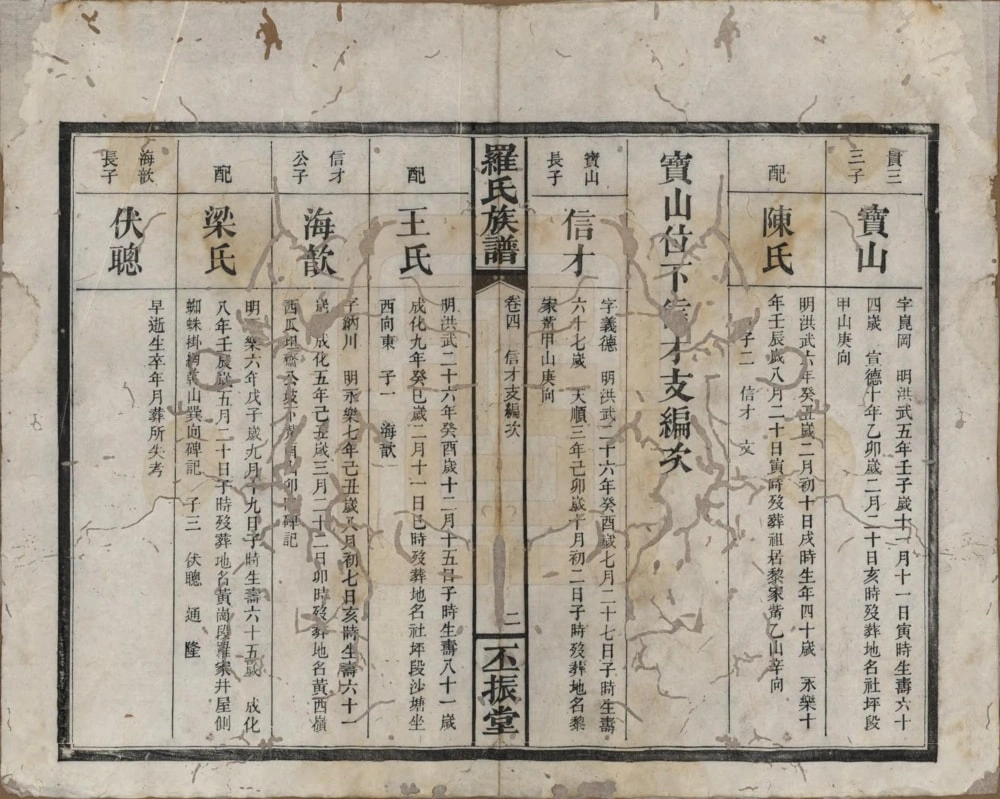 貫三
三子
寶山
字崑岡 明洪武五年壬子歲十二月十一日寅時生壽六十
四歲 宣德十年乙卯歲二月二十日亥時歿葬地名社坪段
甲山庚向
配
陳氏
明洪武六年癸丑歲二月初十日戌時生年四十歲 永樂十
年壬辰歲八月二十日寅時歿葬祖居黎家嵛乙山辛向
子二 信才 文
寶山位下信才支編次
寶山
長子
信才
字義德 明洪武二十六年癸酉歲七月二十七日子時生壽
六十七歲 天順三年己卯歲十月初二日子時歿葬地名黎
家嵛甲山庚向
羅氏族譜
卷四 信才支編次
二
丕振堂
配
王氏
明洪武二十六年癸酉歲十二月十五日子時生壽八十一歲
成化九年癸巳歲二月十一日巳時歿葬地名社坪段沙塘坐
西向東 子一 海歆
信才
公子
海歆
字納川 明永樂七年己丑歲八月初七日亥時生壽六十一
歲 成化五年己丑歲三月二十二日卯時歿葬地名黃西嶺
西瓜 卯 碑記
配
梁氏
明永樂六年戊子歲九月十九日子時生壽六十五歲 成化
八年壬辰歲五月二十日午時歿葬地名黃崗段羅家井屋側
蜘蛛掛網乾山巽向碑記 子三 伏聰 通 隆
海歆
長子
伏聰
早逝生卒年月葬所失考